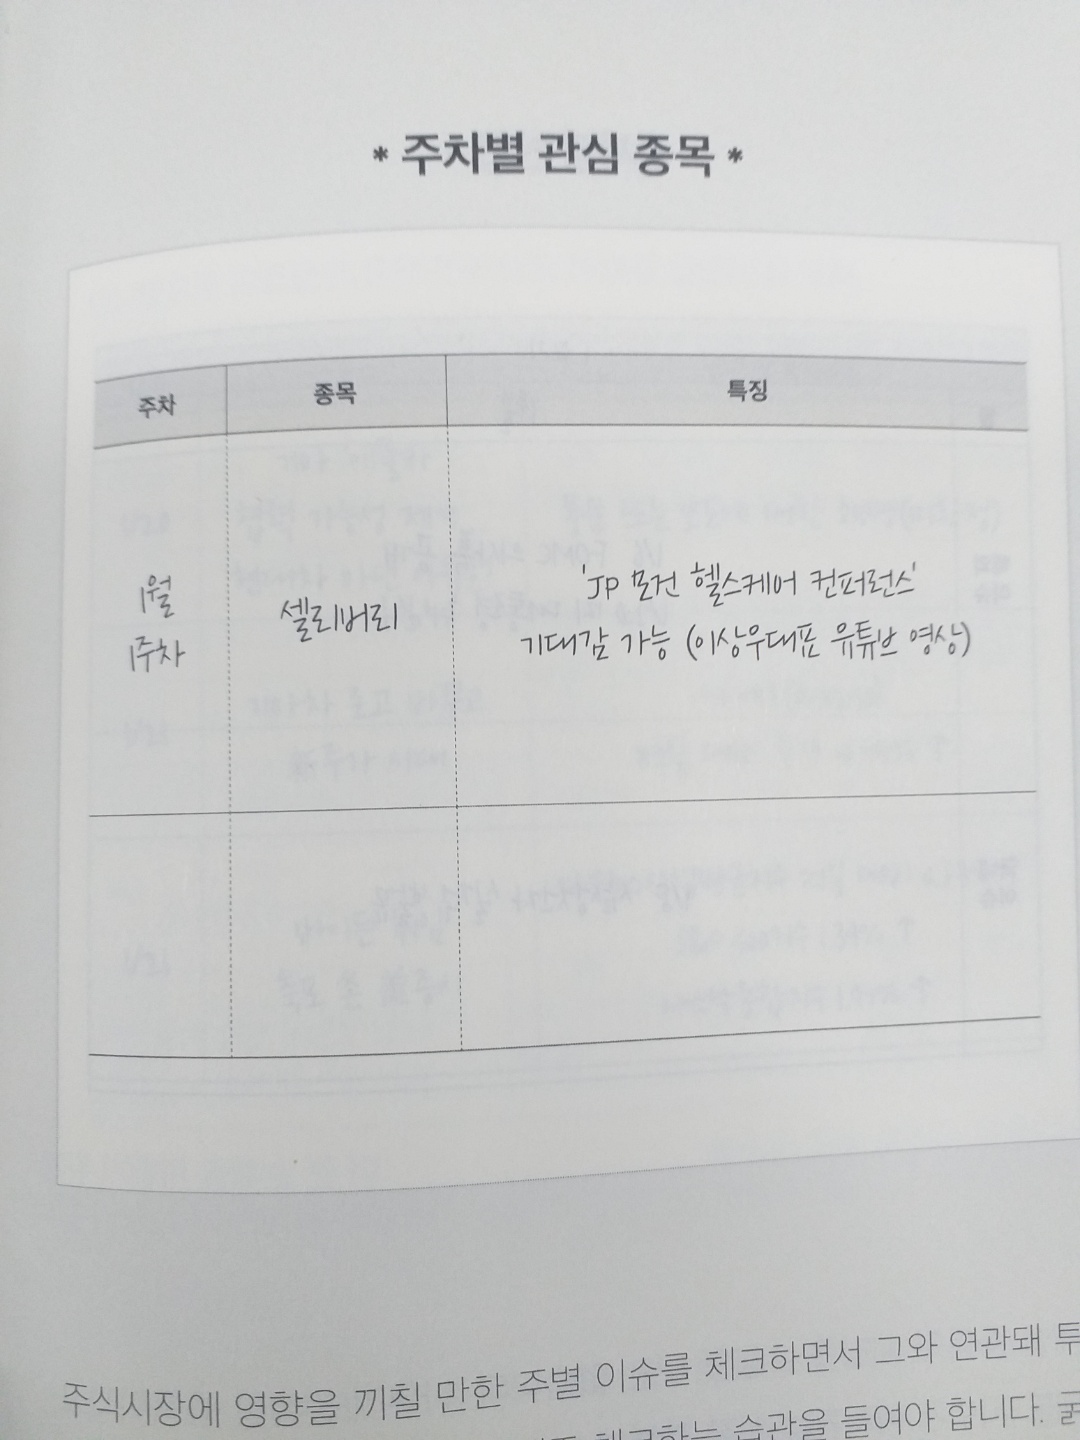 * 주차별 관심 종목 *
주차 종목 특징
1월
1주차
셀리버리
'JP 모건 헬스케어 컨퍼런스'
기대감 가능 (이상우대표 유튜브 영상)
주식시장에 영향을 끼칠 만한 주별 이슈를 체크하면서 그와 연관돼 투
체크하는 습관을 들여야 합니다. 굵